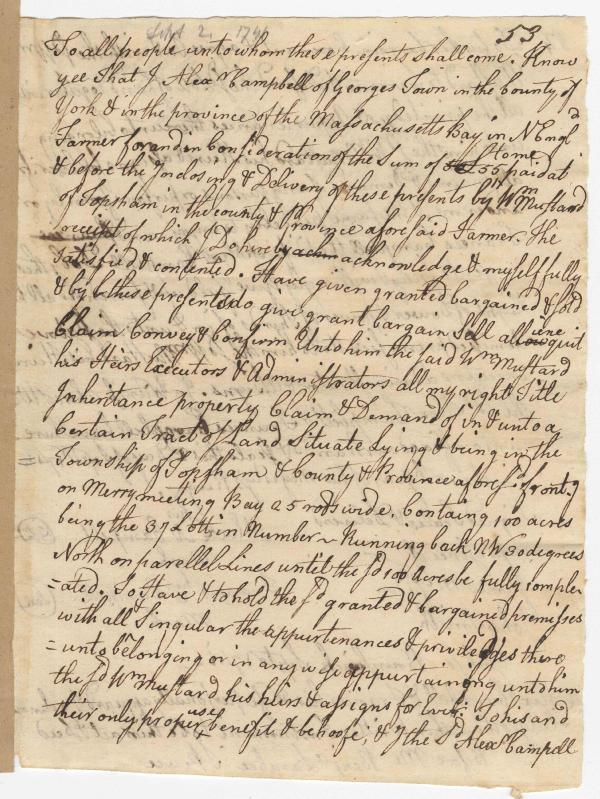 Sept 2, 174
53
To all people unto whom these presents shall come. Know
yee That I Alexr Campbell of Georges Town in the County of
York & in the province of the Massachusetts Bay in N Engld
Farmer for and in Consideration of the Sum of £55 to me paid at
& before the Inclosing & Delivery of these presents by Wm Mustard
of Topsham in the County & Province afore said Farmer. The
receipt of which I Do hereby acknowledge & myself fully
Satisfied & contented. Have given granted bargained & sold
& by these presents do give grant bargain Sell aliene quit
Claim Convey & Confirm Unto him the said Wm Mustard
his Heirs Executors & Administrators all my right Title
Inheritance property Claim & Demand of in & unto a
Certain Tract of Land Situate Lying & being in the
Township of Topsham & County & Province aforesd fronty
on Merrymeeting Bay 25 rods wide. Containg 100 acres
being the 37 Lott in Number ~ Running back NW 30 degrees
North on parellel Lines until the sd 100 acres be fully comple
=ated. To Have & to hold the sd granted & bargained premisses
with all Singular the appurtenances & priviledges there
=unto belonging or in any wise appurtaining unto him
the sd Wm Mustard his heirs & assigns for Ever: To his and
their only proper use benefit & behoofe; & I the Sd Alexr Campell